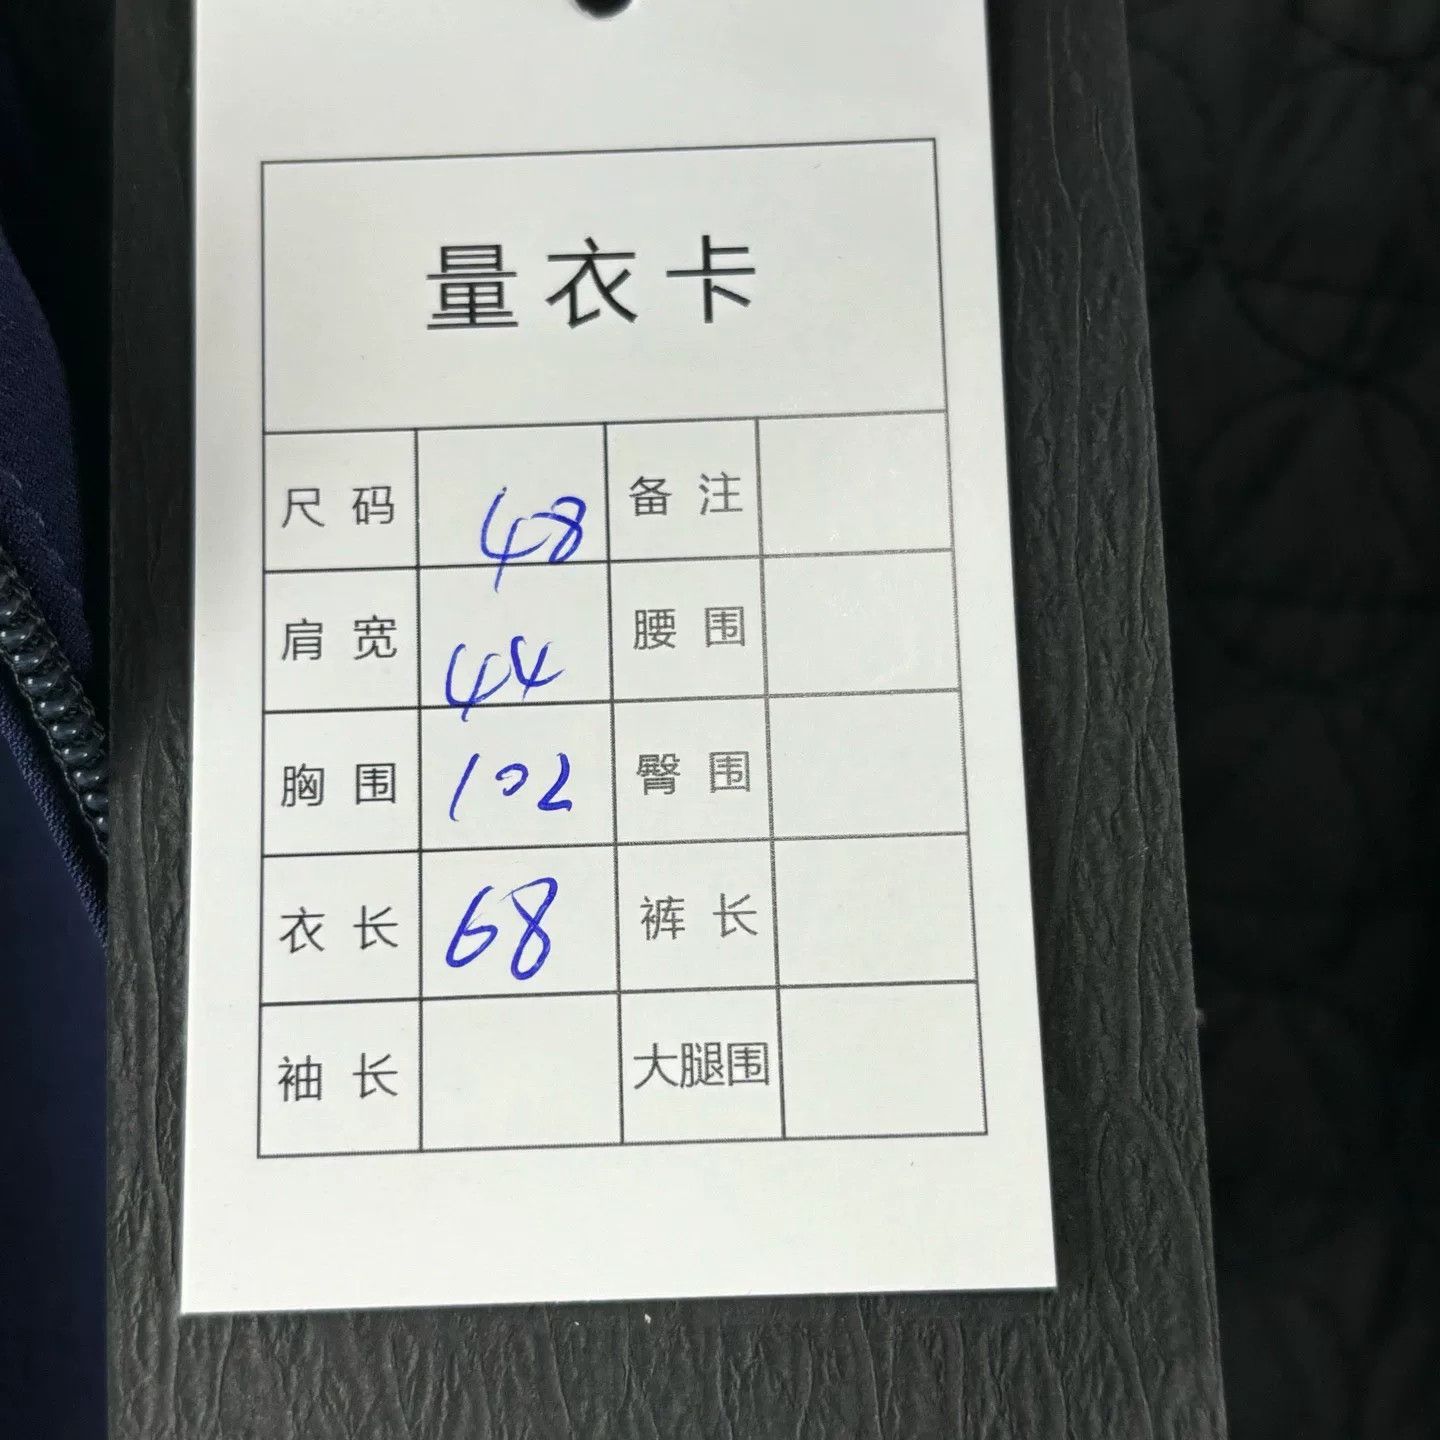 量衣卡
尺码 48 备注
肩宽 44 腰围
胸围 102 臀围
衣长 68 裤长
袖长 大腿围